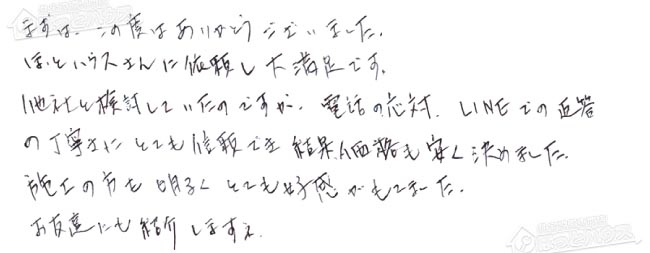 まずは、この度はありがとうございました。
ほっとハウスさんに依頼し大満足です。
他社と検討していたのですが、電話の応対、LINEでの返答
の丁寧さにとても信頼でき結果、価格も安く決めました。
施工の方も明るくとても好感がもてました。
お友達にも紹介しますね。
ほっとハウス